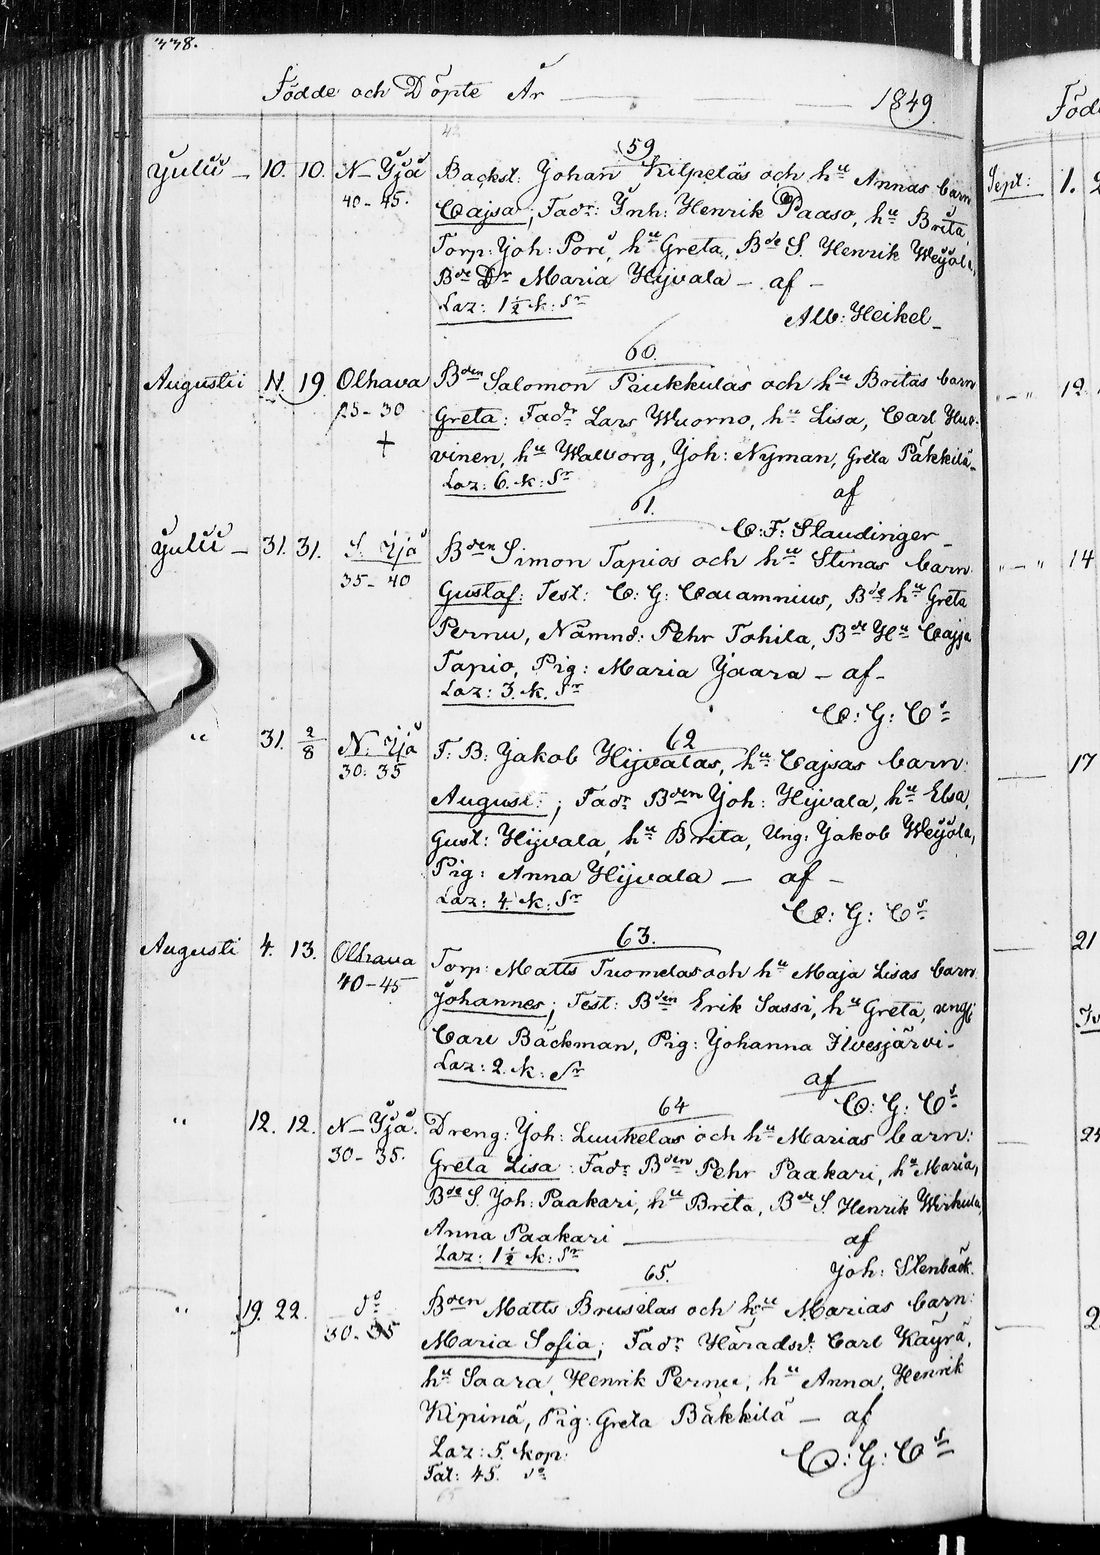 338.
Födde och Döpte År — — 1849
59
Julii — 10. 10. N– Ijå Backst: Johan Kilpeläs och hu Annas barn
40-45. Cajsa; Fadr: Inh: Henrik Paaso, hu Brita,
Torp: Joh: Pori, hu Greta, Bde S. Henrik Weijola,
Bde Dr Maria Hijvala — af —
Laz: 1½ k: Sr
Alb: Heikel
60.
Augusti 11. 19 Olhava Bden Salomon Paukkulas och hu Britas barn
25-30 Greta: Fadr Lars Wuorno, hu Lisa, Carl Huo-
+ vinen, hu Walborg, Joh: Nyman, Greta Päkkilä
Laz: 6. k: Sr af
61. C: F: Staudinger
Julii — 31. 31. S. Ijå Bden Simon Tapios och hu Stinas barn
35-40 Gustaf: Test: C: G: Calamnius, Bde hu Greta
Pernu, Nämnd: Pehr Tohila, Bde Hu Cajsa
Tapio, Pig: Maria Jaara — af —
Laz: 3. k. Sr
C: G: Cs
62
" 31. 2/8 N: Ijå T: B: Jakob Hijvalas, hu Cajsas barn:
30. 35 August:; Fadr Bden Joh: Hijvala, hu Elsa,
Gust: Hijvala, hu Brita, Ung: Jakob Weijola,
Pig: Anna Hijvala — af —
Laz: 4. k: Sr
C: G: Cs
63.
Augusti 4. 13. Olhava Torp: Matts Tuomelas och hu Maja Lisas barn
40-45 Johannes; Test: Bden Erik Sassi, hu Greta, ungl:
Carl Bäckman, Pig: Johanna Ilvesjärvi.
Laz: 2. k: Sr af
C: G: Cs
64
" 12. 12. N– Ijå. Dreng: Joh: Luukelas och hu Marias barn:
30-35. Greta Lisa: Fadr Bden Pehr Paakari, hu Maria,
Bde S. Joh: Paakari, hu Brita, Bde S. Henrik Wirkula,
Anna Paakari — af
Laz: 1½ k: Sr
Joh: Stenbäck.
65.
" 19. 22. do Bden Matts Bruselas och hu Marias barn:
30-35 Maria Sofia; Fadr Häradsd: Carl Käyrä,
hu Saara, Henrik Pernu, hu Anna, Henrik
Kipinä, Pig: Greta Bäkkilä — af
Laz: 5. kop:
Tal: 45. do
C: G: Cs
Föd
Sept: 1.
" — " 12.
" — " 14
— 17
— 21